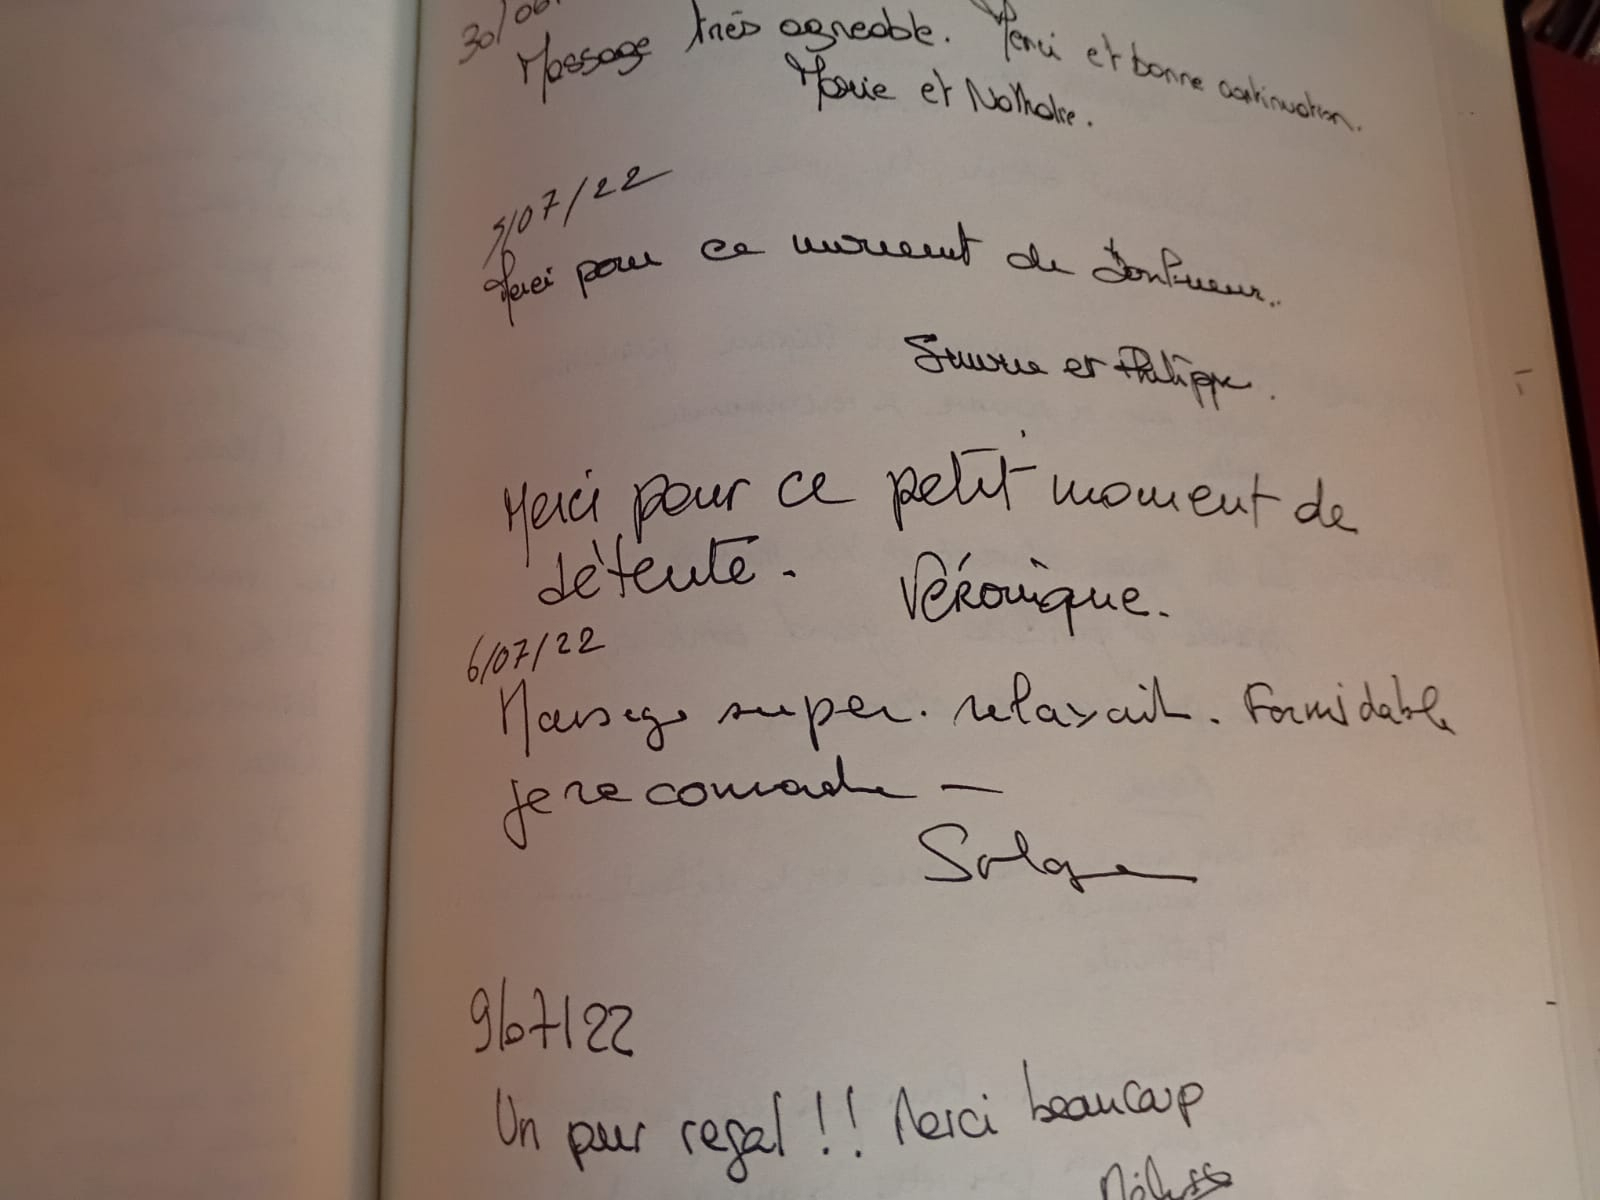 30/06
Massage très agréable. Merci et bonne continuation.
Marie et Nathalie.
5/07/22
Merci pour ce moment de bonheur..
et Philippe.
Merci pour ce petit moment de
détente. Véronique.
6/07/22
Massage super. relaxant. Formidable
je recommande —
Solange
9/07/22
Un pur regal !! Merci beaucoup